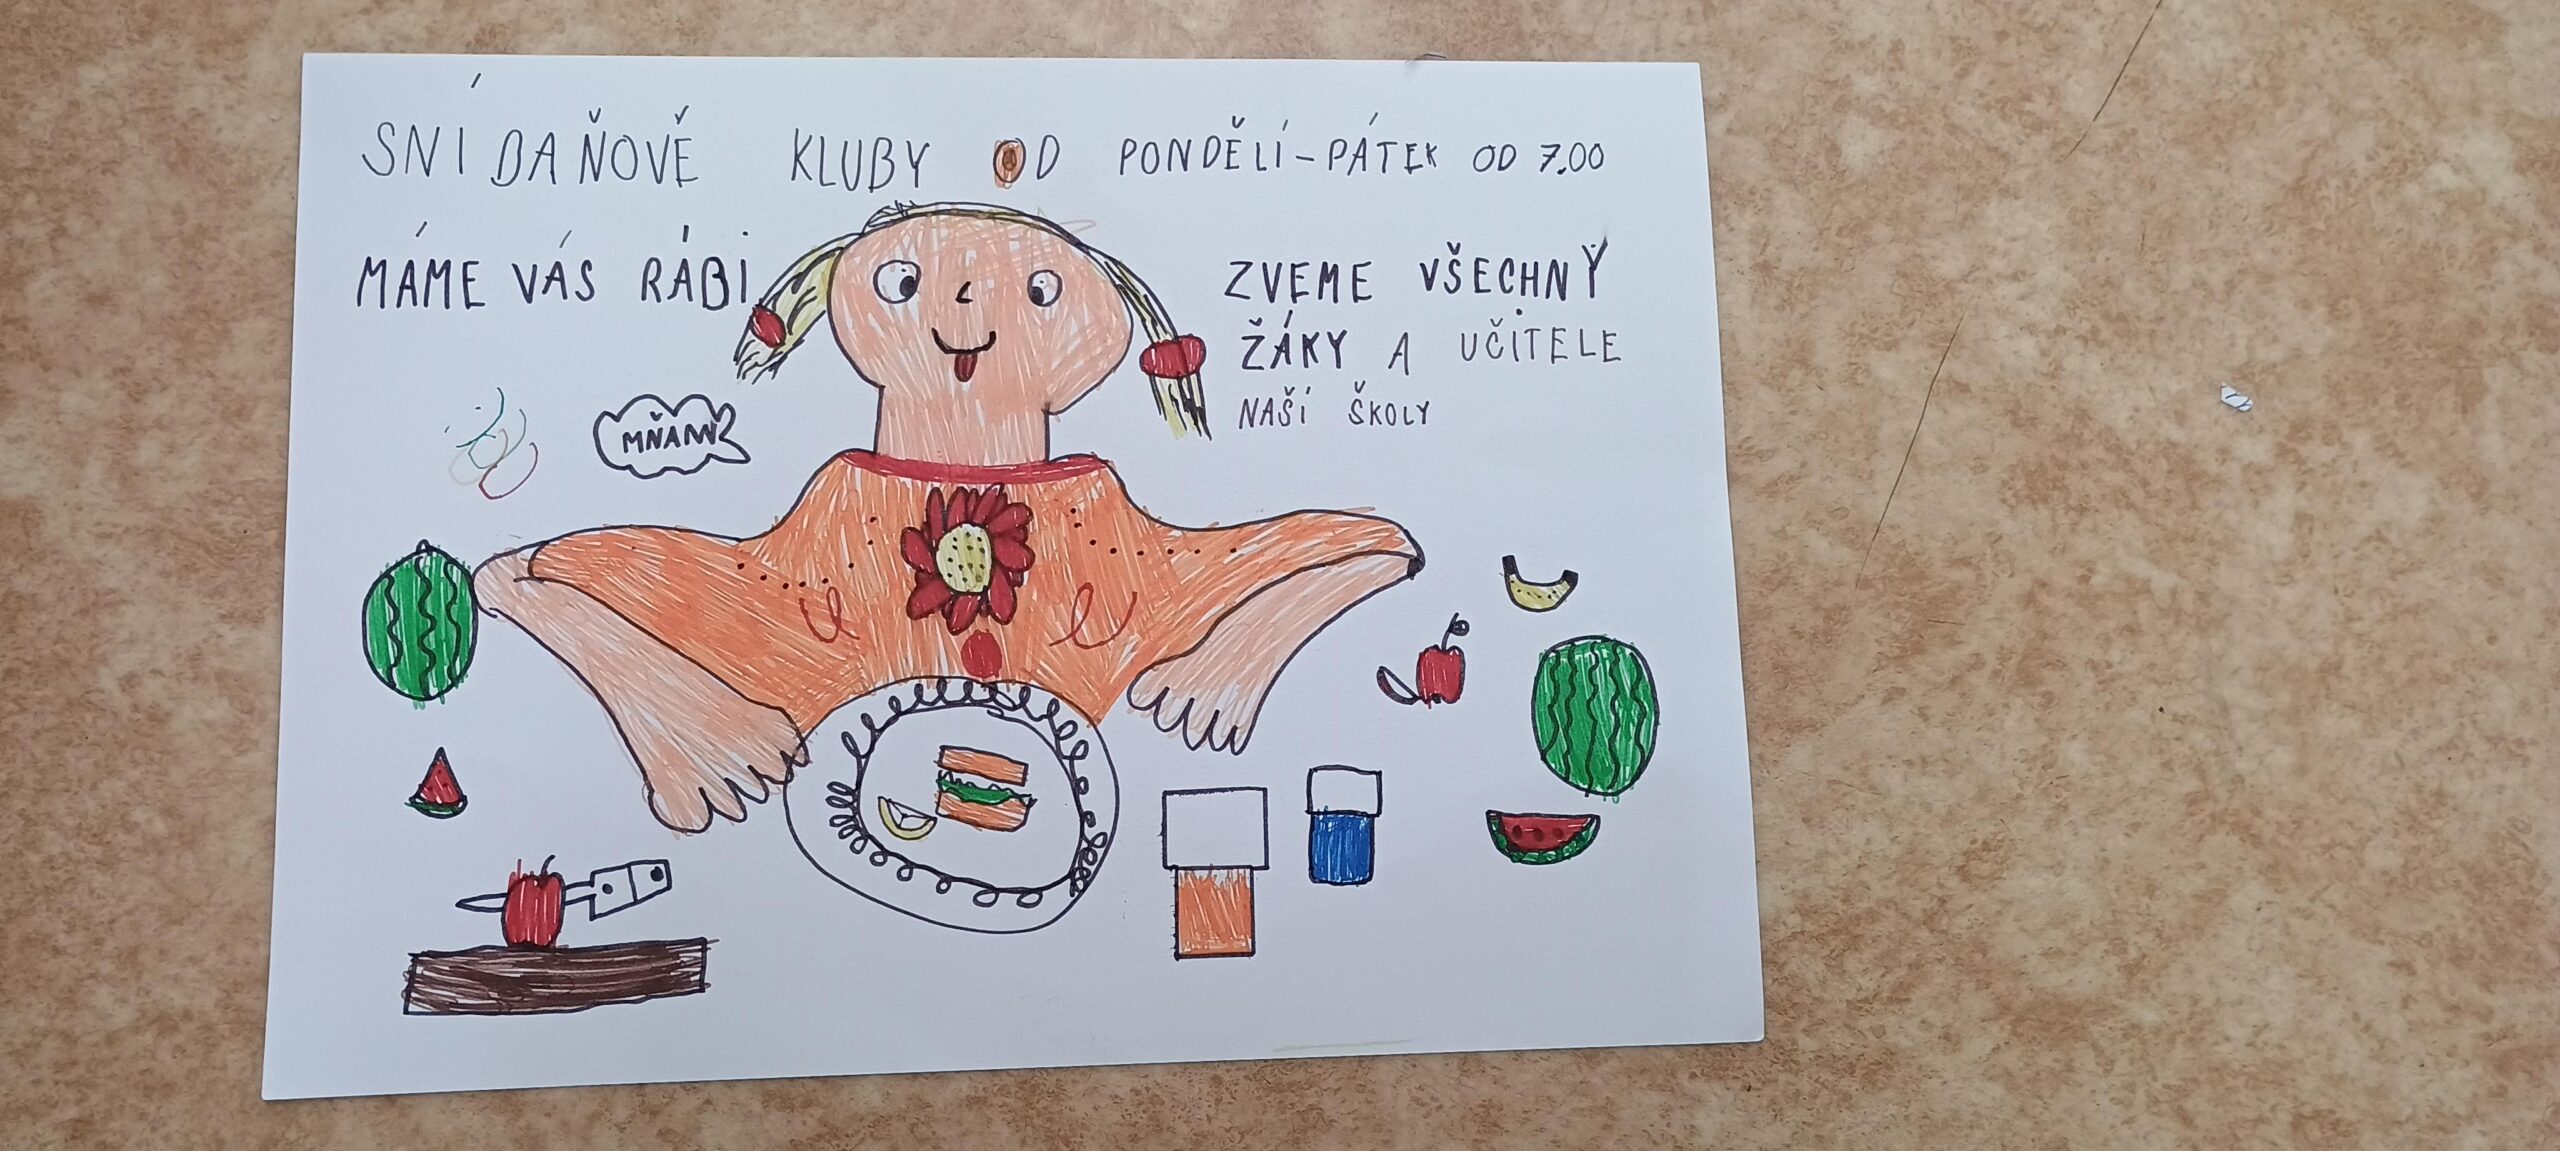 SNÍDAŇOVÉ KLUBY OD PONDĚLÍ-PÁTEK OD 7.00
MÁME VÁS RÁDI
ZVEME VŠECHNY
ŽÁKY A UČITELE
NAŠÍ ŠKOLY
MŇAM